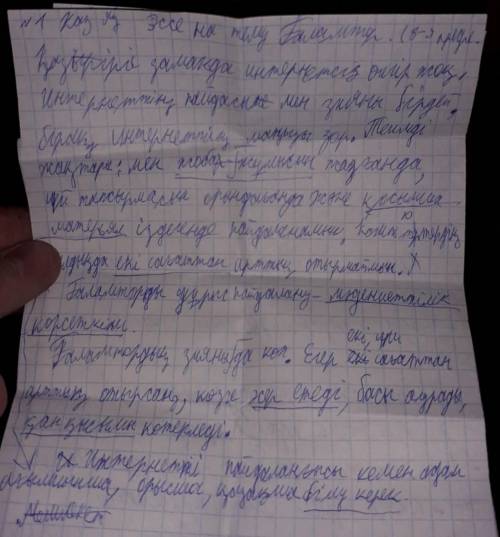 №1 Каз яз Эссе на тему Ғаламтор. (8-9 предл.
Қазіргі заманда интернетсіз өмір жоқ.
Интернеттің пайдасы мен зияны бірдей,
бірақ интернеттің маңызы зор. Тиімді
жақтары: мен жобалық жұмысын жазғанда,
үй тапсырмасын орындағанда және қосымша
материал іздегенде пайдаланамын, компьютердің
алдында екі сағаттан артық отырмаймын.
Ғаламторды дұрыс пайдалану - мәдениеттілік
көрсеткіші.
Ғаламтордың зияны да көп. Егер екі, үш сағаттан
артық отырсаң, көзге әсер етеді, басы ауырады,
қан қысымы көтеріледі.
Интернетті пайдаланғысы келген адам
ағылшынша, орысша, қазақша білу керек.